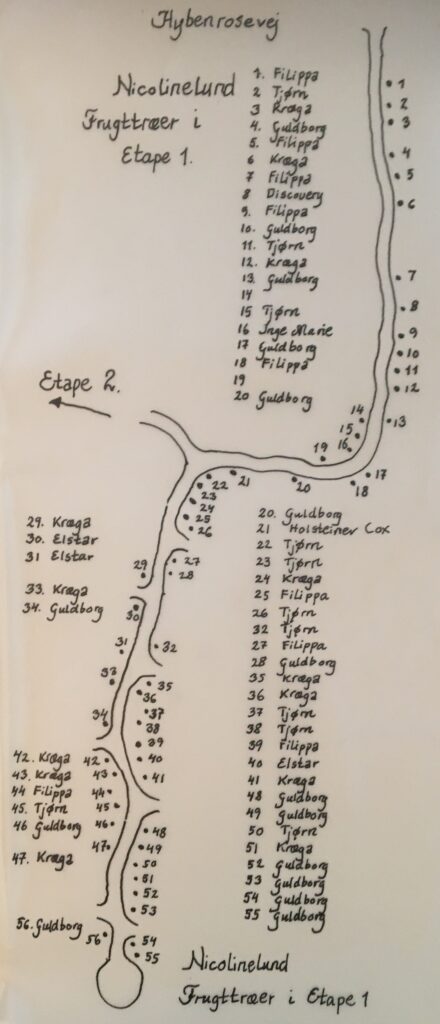 Hybenrosevej
Nicolinelund
Frugttræer i
Etape 1.
1. Filippa
2 Tjørn
3 Kræga
4. Guldborg
5. Filippa
6 Kræga
7 Filippa
8 Discovery
9. Filippa
10. Guldborg
11. Tjørn
12. Kræga
13. Guldborg
14
15 Tjørn
16 Inge Marie
17 Guldborg
18 Filippa
19
20 Guldborg
1
2
3
4
5
6
7
8
9
10
11
12
13
14
15
16
17
18
19
20
21
22
23
24
25
26
Etape 2.
29. Kræga
30. Elstar
31 Elstar
33. Kræga
34. Guldborg
27
28
29
30
31
32
33
34
35
36
37
38
39
40
41
20. Guldborg
21 Holsteiner Cox
22 Tjørn
23 Tjørn
24 Kræga
25 Filippa
26 Tjørn
32 Tjørn
27 Filippa
28 Guldborg
35 Kræga
36 Kræga
37 Tjørn
38 Tjørn
39 Filippa
40 Elstar
41 Kræga
48 Guldborg
49 Guldborg
50 Tjørn
51 Kræga
52 Guldborg
53 Guldborg
54 Guldborg
55 Guldborg
42. Kræga
43. Kræga
44 Filippa
45. Tjørn
46 Guldborg
47. Kræga
42
43
44
45
46
47
48
49
50
51
52
53
56. Guldborg
56
54
55
Nicolinelund
Frugttræer i Etape 1